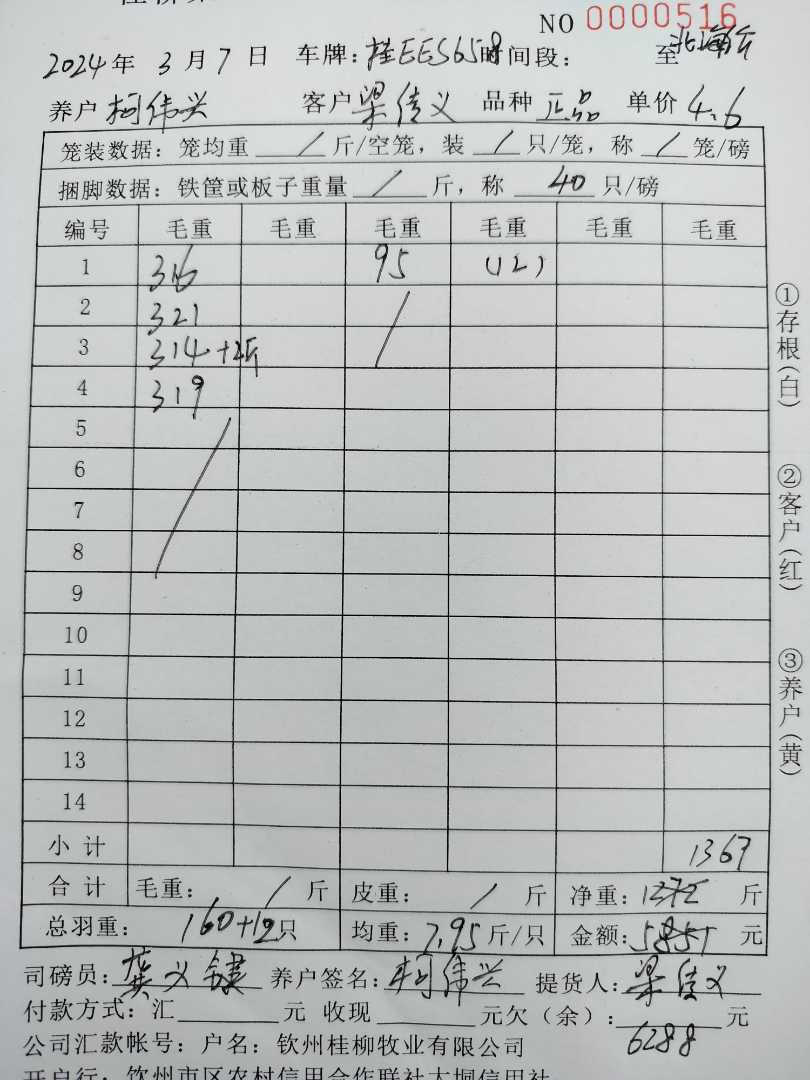 NO 0000516
2024年 3月7日 车牌:桂EES658 时间段: 至北海
养户 柯伟兴 客户 梁佳义 品种 正品 单价 4.6
笼装数据:笼均重 / 斤/空笼,装 / 只/笼,称 / 笼/磅
捆脚数据:铁筐或板子重量 / 斤,称 40 只/磅
编号 毛重 毛重 毛重 毛重 毛重 毛重
1 316 95 (12)
2 321 /
3 314+2斤
4 319
5 /
6
7
8
9
10
11
12
13
14
小计 1367
合计 毛重: / 斤 皮重: / 斤 净重:1272 斤
总羽重: 160+12只 均重:7.95斤/只 金额:5851 元
司磅员: 龚义 养户签名:柯伟兴 提货人:梁佳义
付款方式:汇 元 收现 元欠(余): 元
6288
公司汇款帐号:户名:钦州桂柳牧业有限公司
开户行:钦州市区农村信用合作联社大垌信用社
①存根(白)
②客户(红)
③养户(黄)